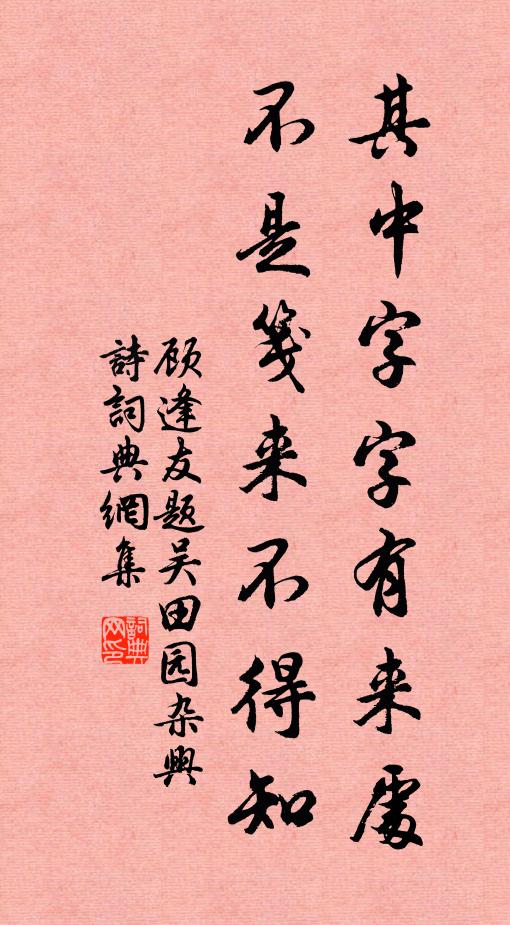 其中字字有来處
不是箋来不得知
顾逢友题吴田园杂興
詩詞典網集
詞典网印